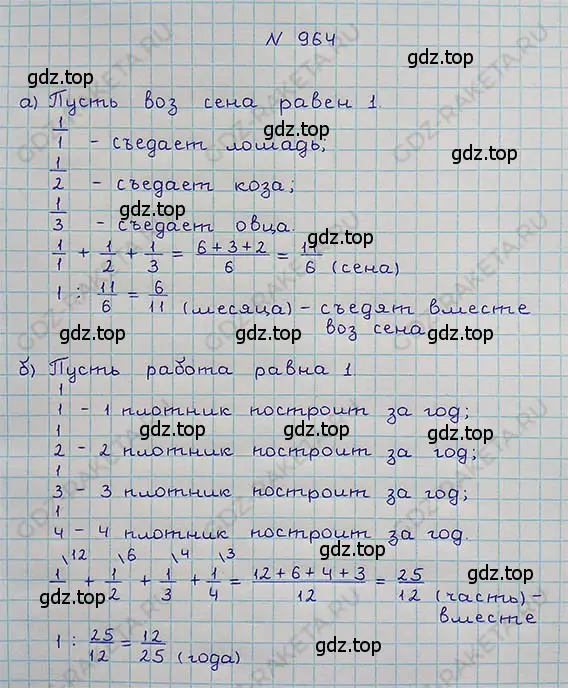 N 964
gdz.top
а) Пусть воз сена равен 1.
gdz.top
1/1 - съедает лошадь;
gdz.top
1/2 - съедает коза;
gdz.top
1/3 - съедает овца.
gdz.top
1/1 + 1/2 + 1/3 = (6+3+2)/6 = 11/6 (сена)
1 : 11/6 = 6/11 (месяца) - съедят вместе
gdz.top gdz.top
воз сена
б) Пусть работа равна 1
gdz.top
1
1 - 1 плотник построит за год;
gdz.top gdz.top
1
2 - 2 плотник построит за год;
1
3 - 3 плотник построит за год;
1
4 - 4 плотник построит за год.
gdz.top
\12 \6 \4 \3
1/1 + 1/2 + 1/3 + 1/4 = (12+6+4+3)/12 = 25/12 (часть) -
gdz.top gdz.top
вместе
1 : 25/12 = 12/25 (года)
gdz.top
GDZ-RAKETA.RU